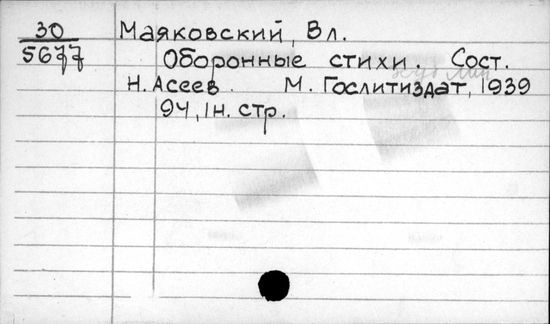 30
5677
Маяковский, Вл.
Оборонные стихи. Сост.
Н. Асеев. М. Гослитиздат, 1939
94, 1н. стр.